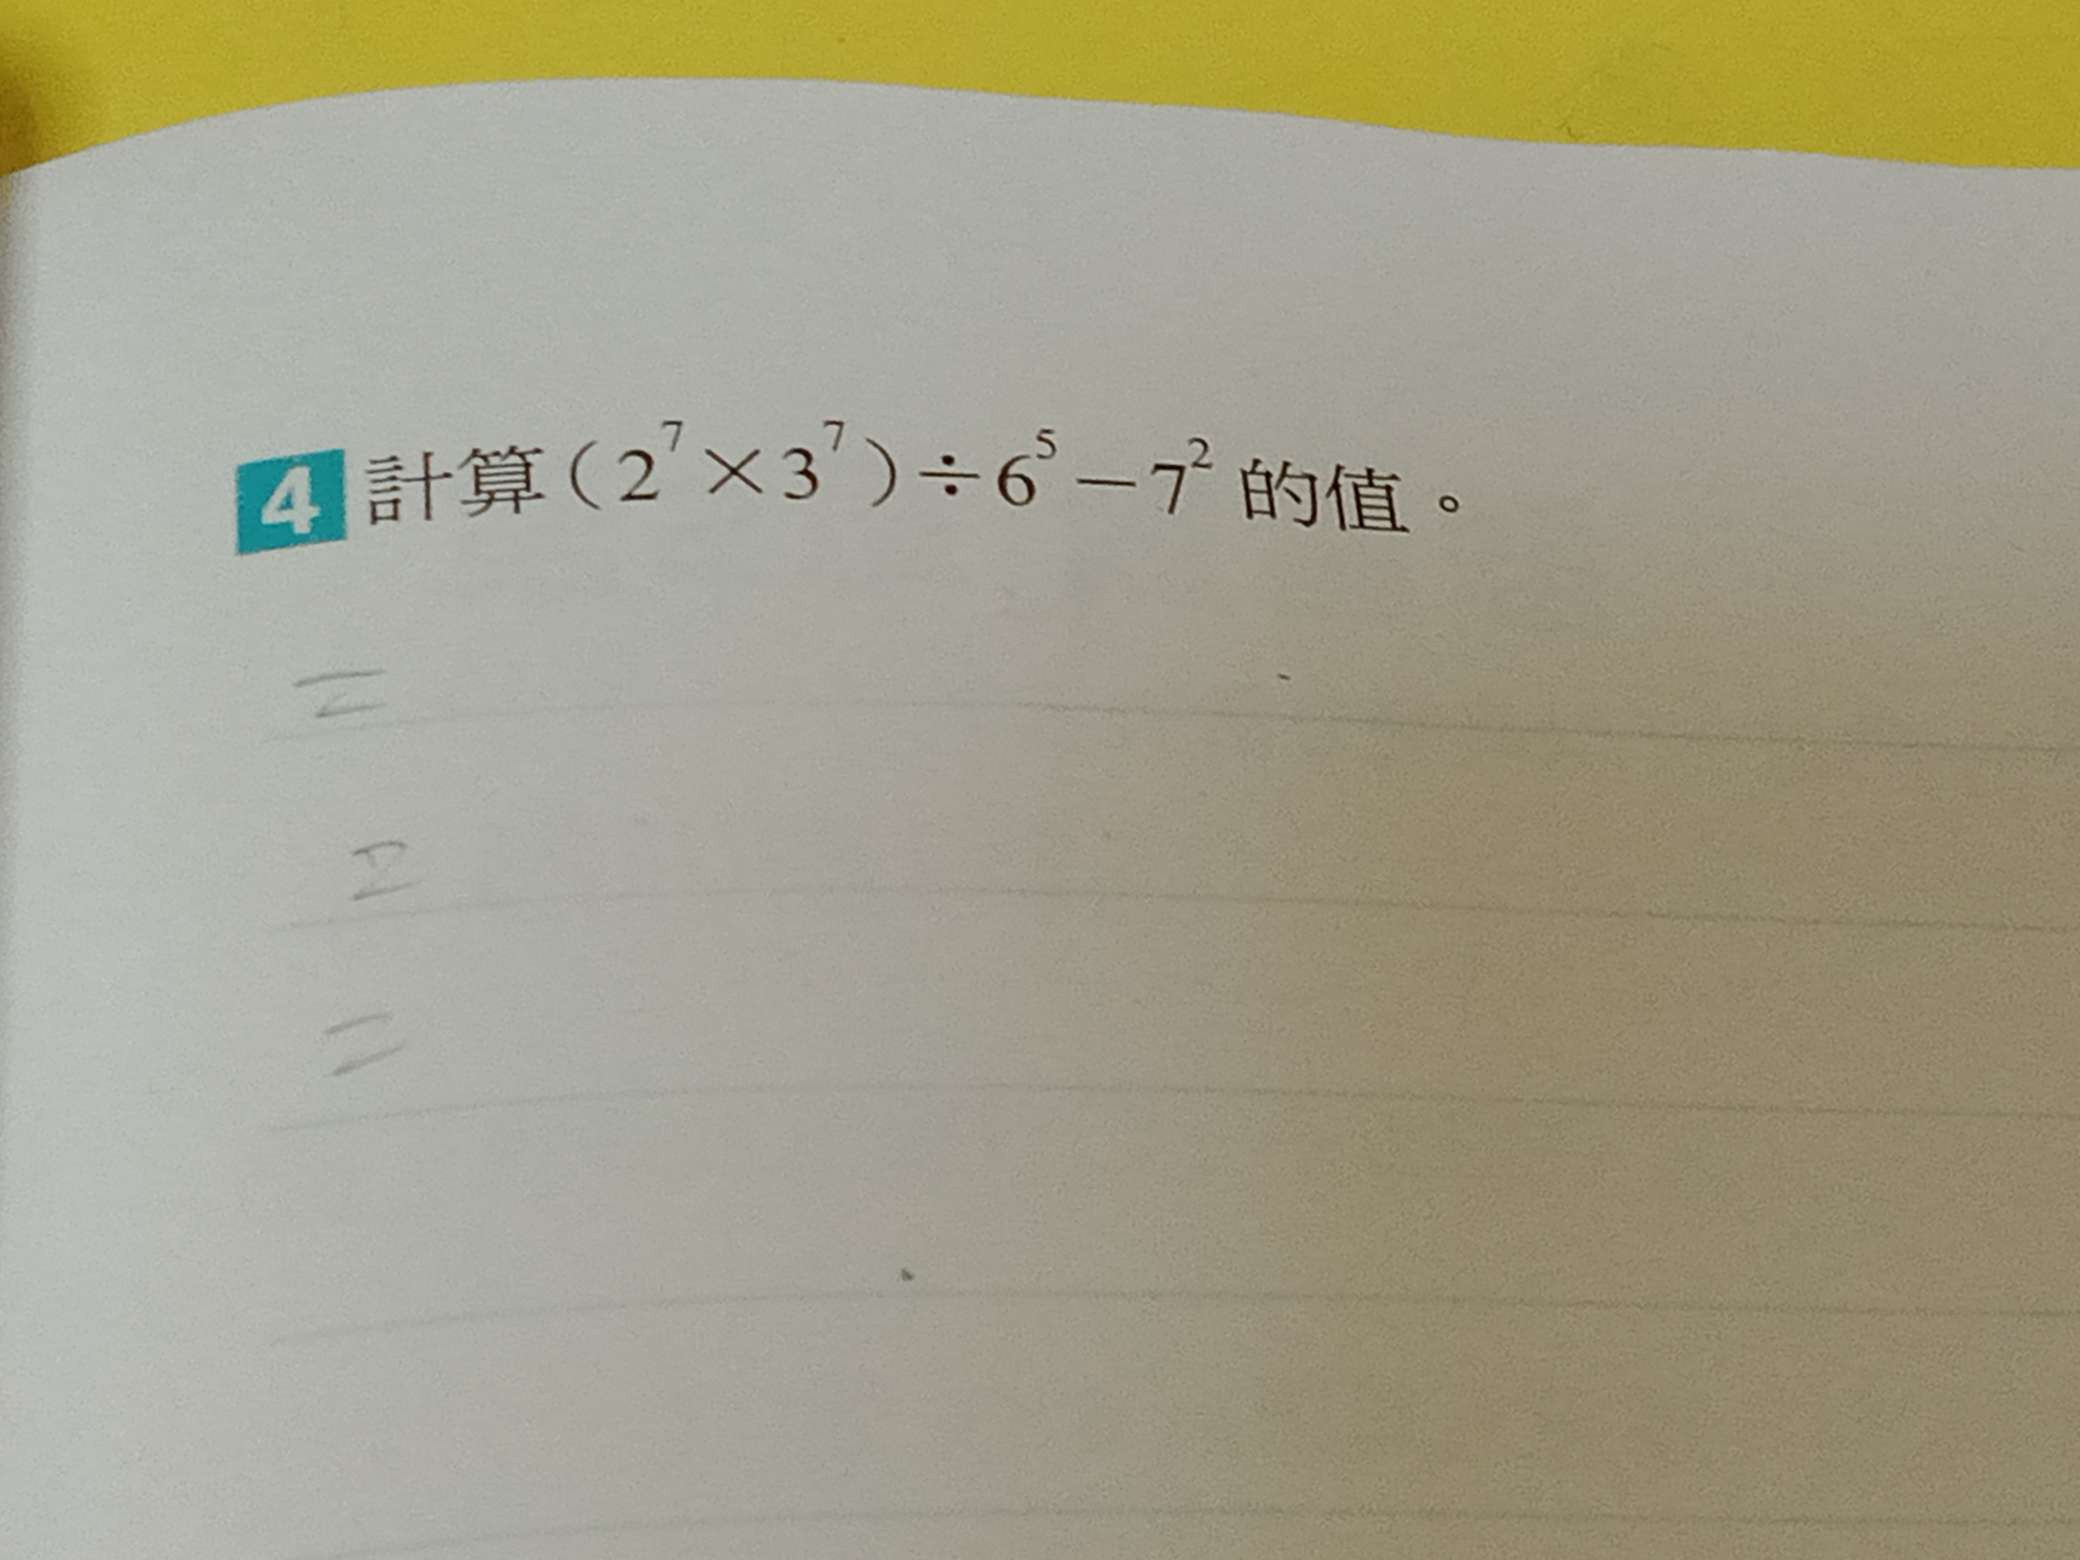 4 計算(2⁷×3⁷)÷6⁵−7² 的值。
=
=
=